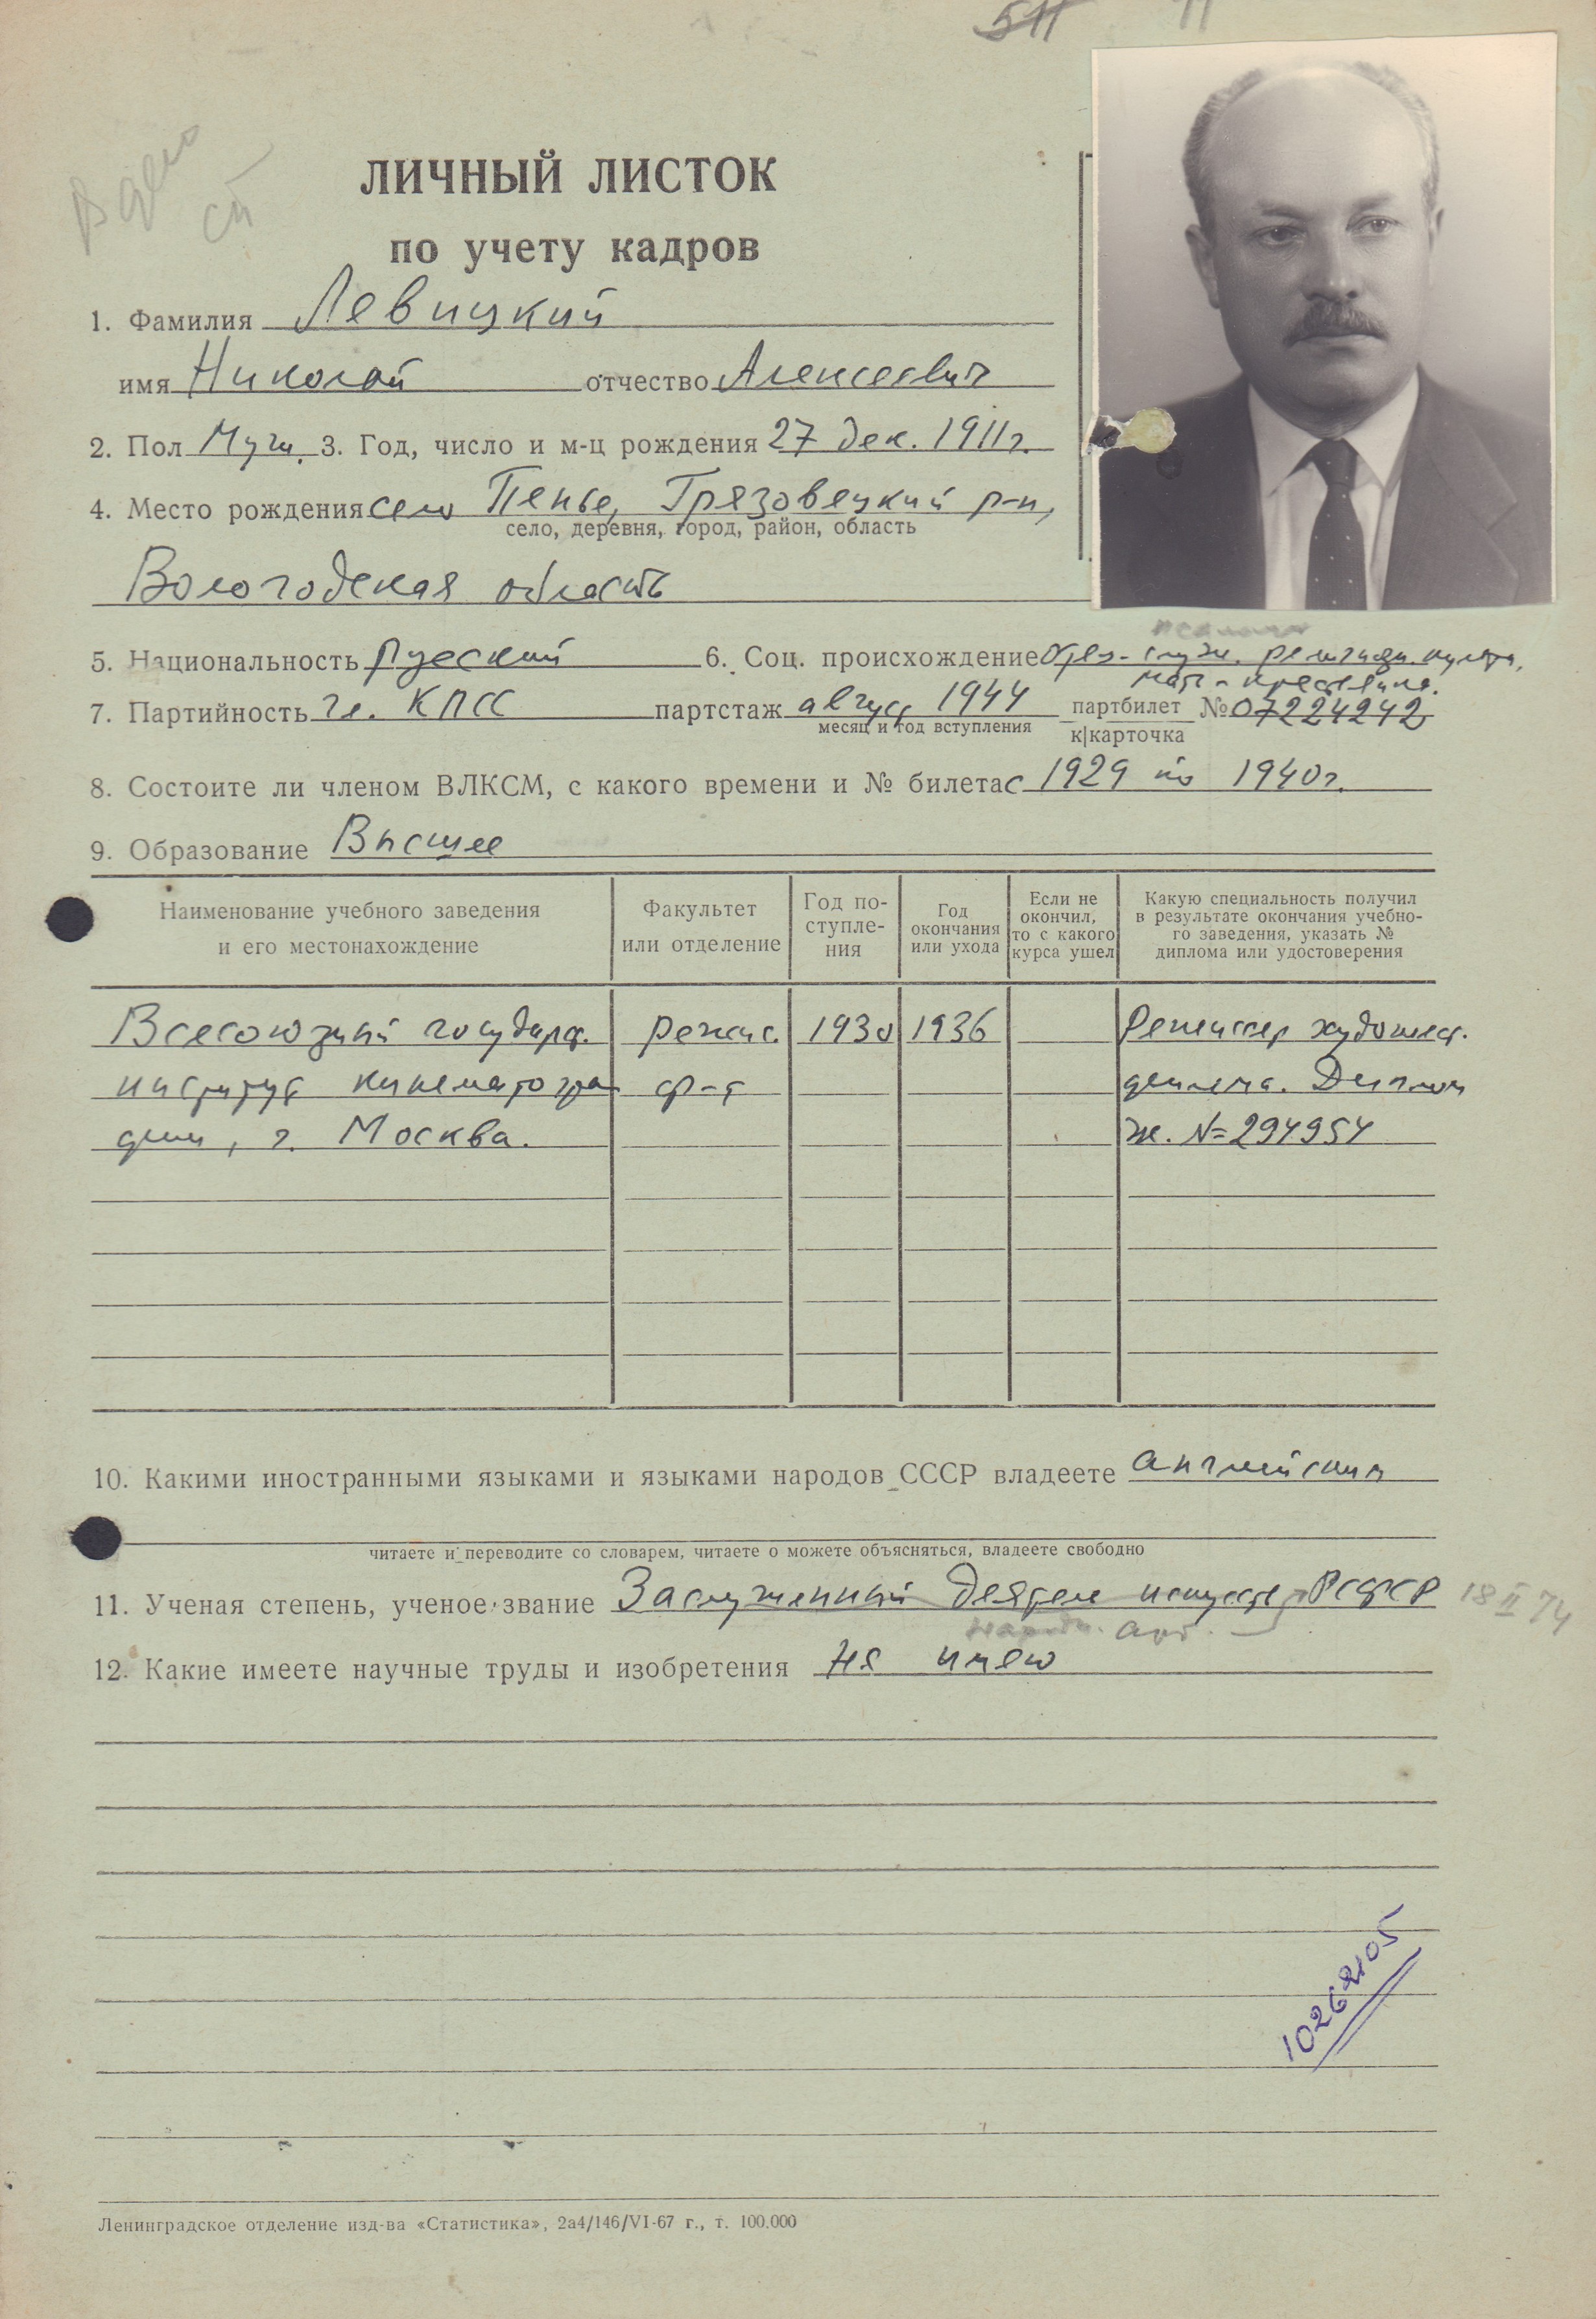 511
В дело
ЛИЧНЫЙ ЛИСТОК
по учету кадров
1. Фамилия Левицкий
имя Николай отчество Алексеевич
2. Пол Муж. 3. Год, число и м-ц рождения 27 дек. 1911 г.
4. Место рождения село Пенье, Грязовецкий р-н,
село, деревня, город, район, область
Вологодская область
псаломщ
5. Национальность русский 6. Соц. происхождение Отец - служ. религиозн. культа,
мать - крестьянка.
7. Партийность чл. КПСС партстаж август 1944 партбилет № 07224242
месяц и год вступления к|карточка
8. Состоите ли членом ВЛКСМ, с какого времени и № билета с 1929 по 1940 г.
9. Образование Высшее
Наименование учебного заведения и его местонахождение
Факультет или отделение
Год по-
ступле-
ния
Год
окончания
или ухода
Если не
окончил,
то с какого
курса ушел
Какую специальность получил
в результате окончания учебно-
го заведения, указать №
диплома или удостоверения
Всесоюзный государст. режис. 1930 1936 Режиссер художест.
институт кинематогра ф-т фильма. Диплом
фии, г. Москва. Ж. N=294954
10. Какими иностранными языками и языками народов СССР владеете английским
читаете и переводите со словарем, читаете о можете объясняться, владеете свободно
11. Ученая степень, ученое звание Заслуженный деятель искусств РСФСР 18 II 74
Народн. арт.
12. Какие имеете научные труды и изобретения Не имею
10262105
Ленинградское отделение изд-ва «Статистика», 2а4/146/VI-67 г., т. 100.000